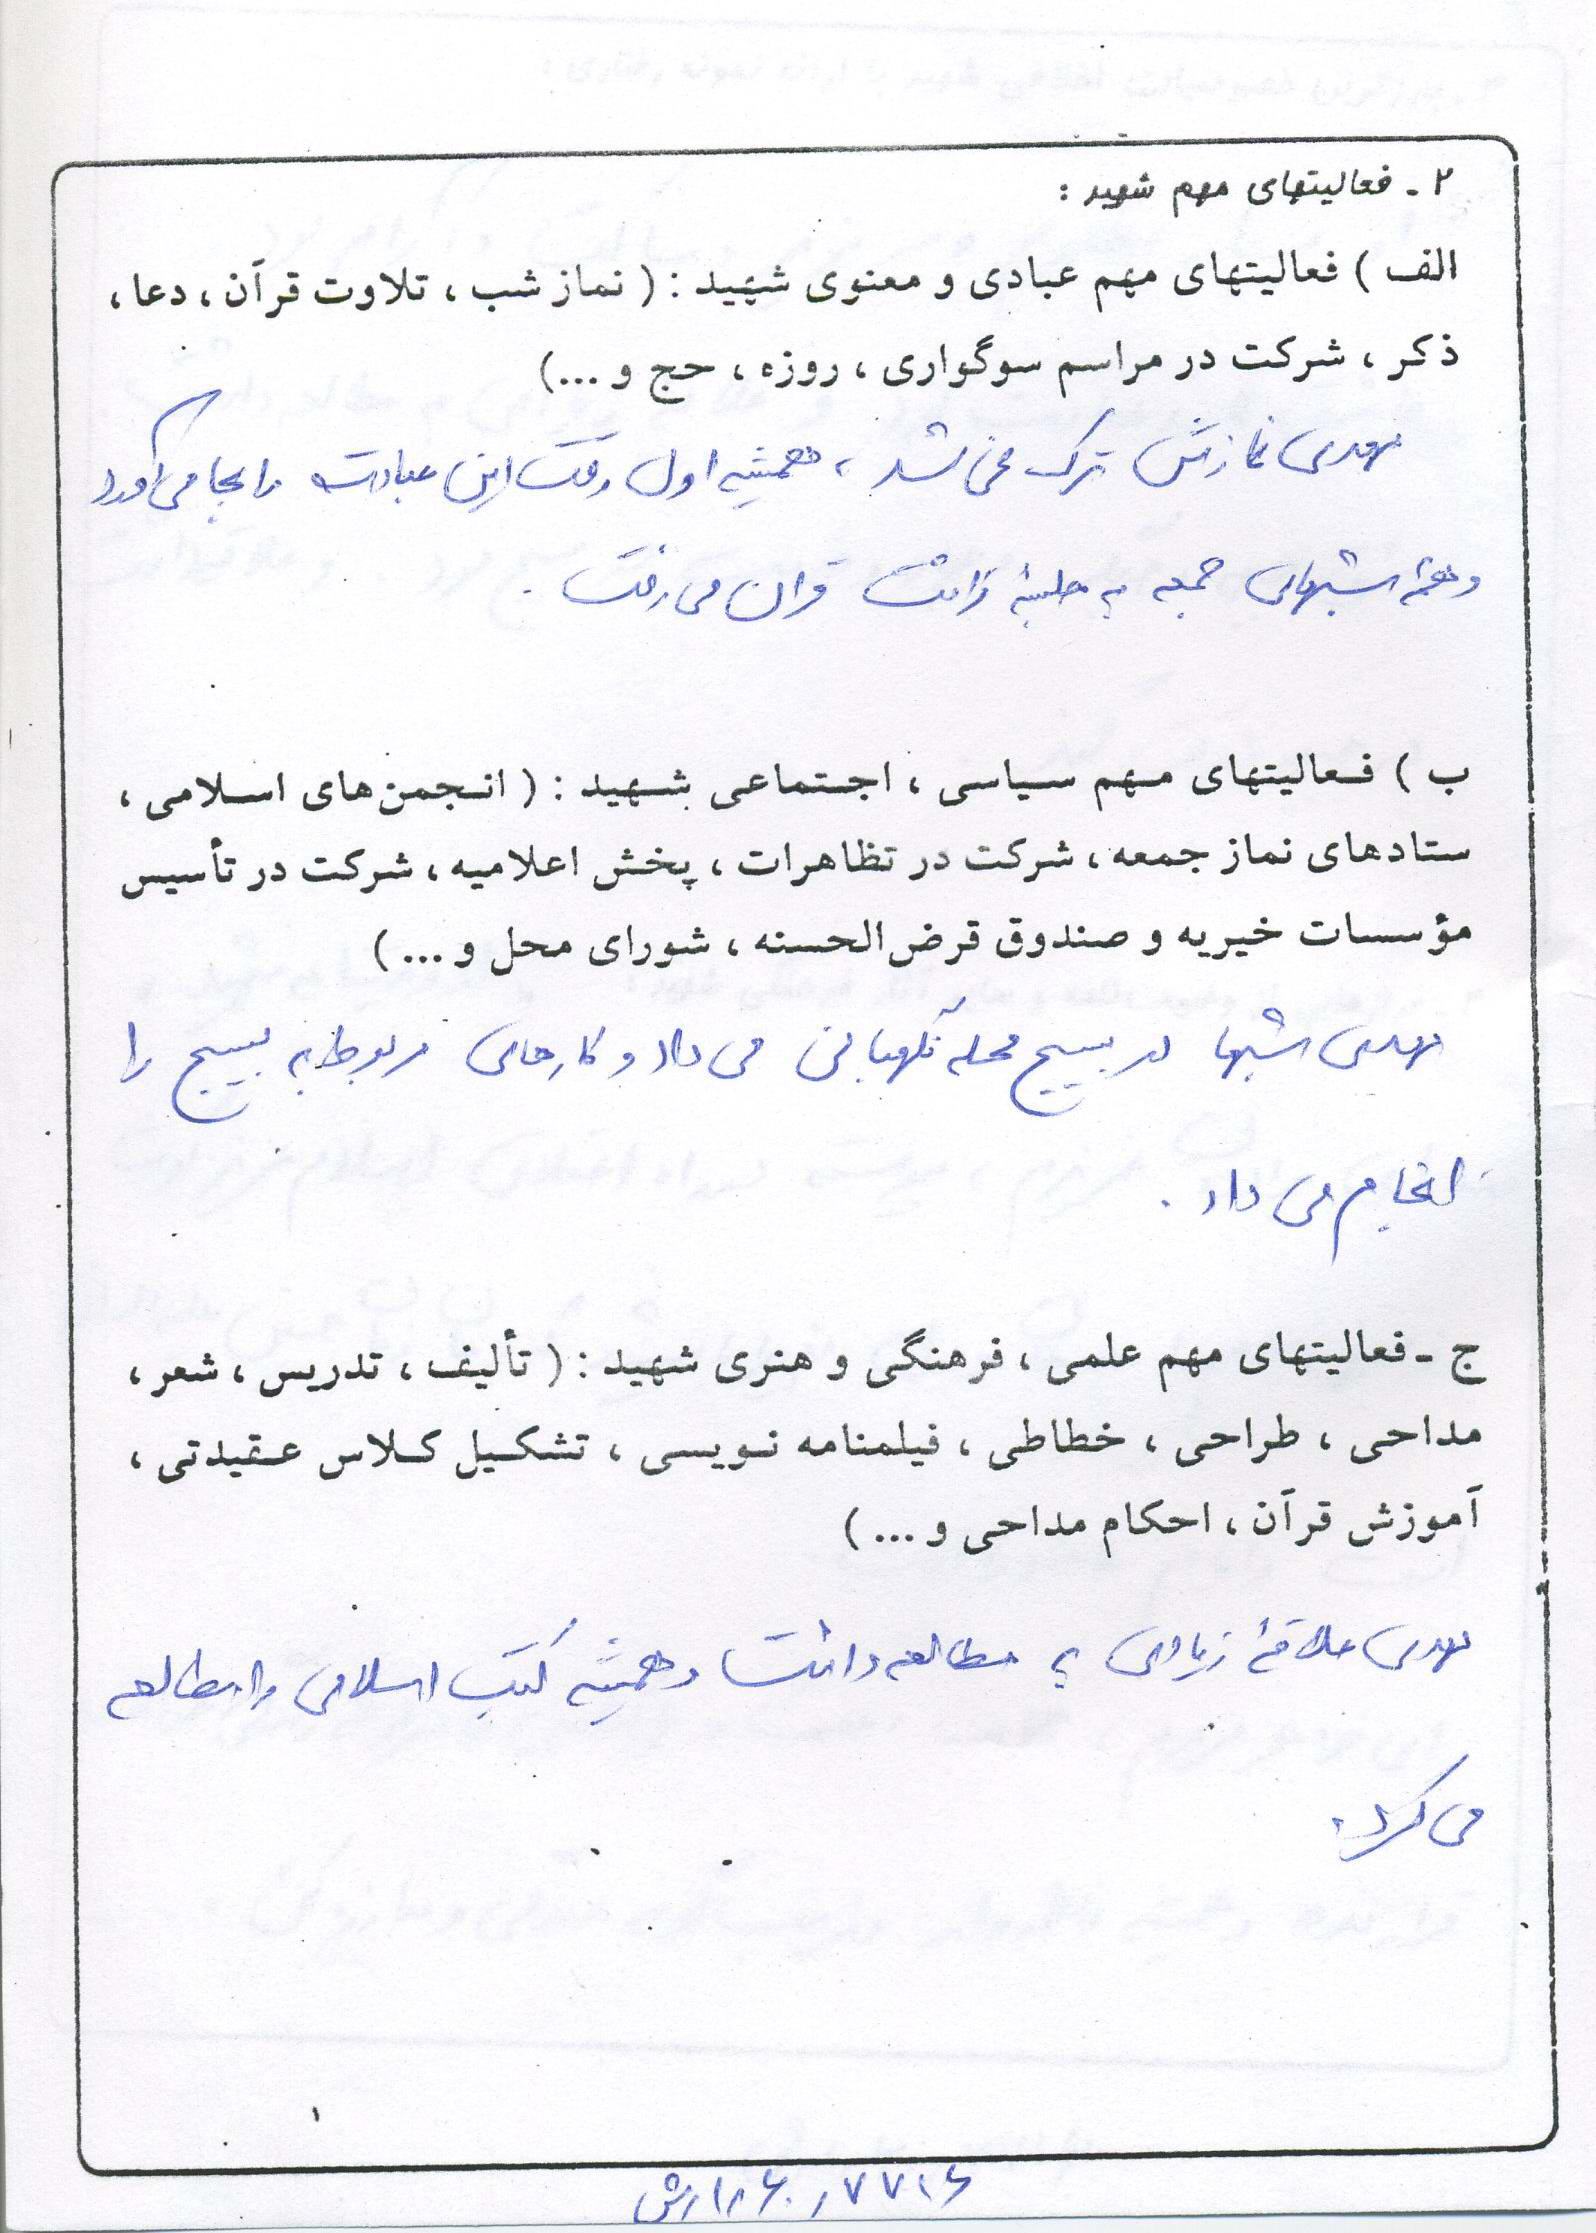 ۲ - فعالیتهای مهم شهید :
الف ) فعالیتهای مهم عبادی و معنوی شهید : ( نماز شب ، تلاوت قرآن ، دعا ،
ذکر ، شرکت در مراسم سوگواری ، روزه ، حج و ...)
مهدی نمازش ترک نمی شد ، همیشه اول وقت این عبادت را بجا می آورد
و همهٔ شبهای جمعه به جلسهٔ قرائت قرآن می رفت .
ب ) فعالیتهای مهم سیاسی ، اجتماعی شهید : ( انجمن‌های اسلامی ،
ستادهای نماز جمعه ، شرکت در تظاهرات ، پخش اعلامیه ، شرکت در تأسیس
مؤسسات خیریه و صندوق قرض‌الحسنه ، شورای محل و ... )
مهدی شبها در بسیج محله نگهبانی می داد و کارهای مربوط به بسیج را
انجام می داد .
ج - فعالیتهای مهم علمی ، فرهنگی و هنری شهید : ( تألیف ، تدریس ، شعر ،
مداحی ، طراحی ، خطاطی ، فیلمنامه نویسی ، تشکیل کلاس عقیدتی ،
آموزش قرآن ، احکام مداحی و ... )
مهدی علاقهٔ زیادی به مطالعه داشت و همیشه کتب اسلامی را مطالعه
می کرد.